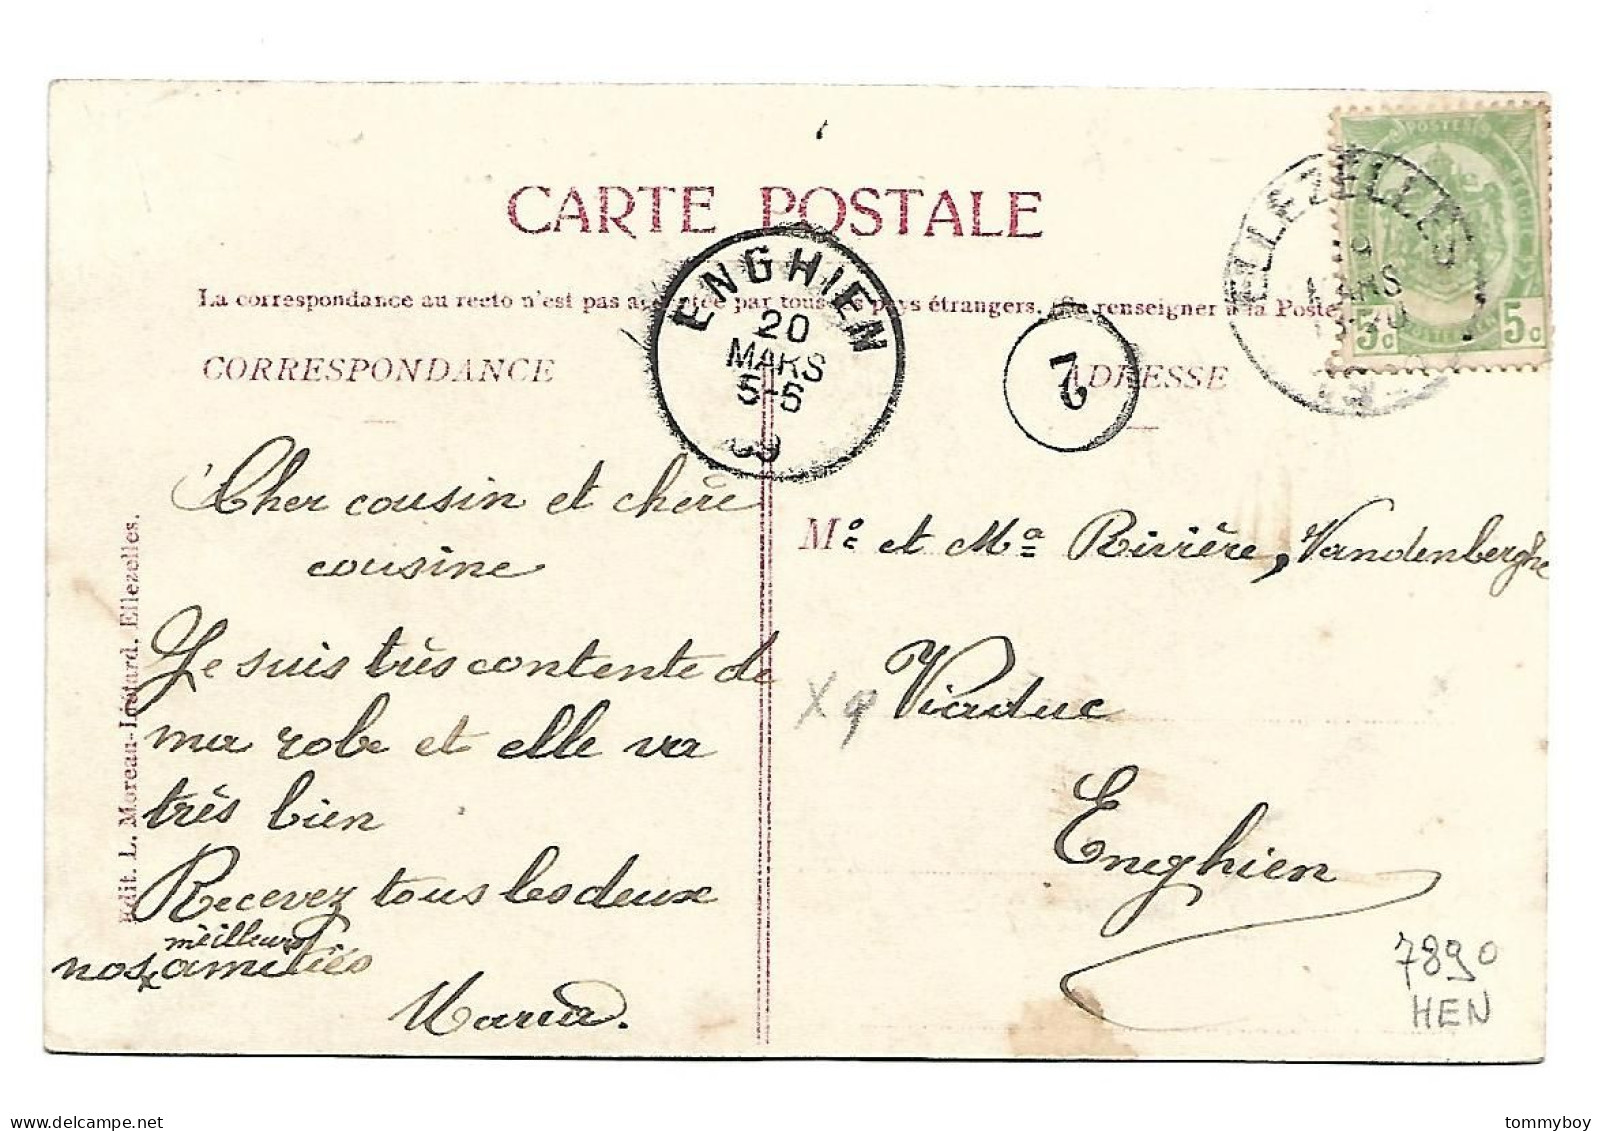 CARTE POSTALE
La correspondance au recto n'est pas acceptée par tous les pays étrangers. (Se renseigner à la Poste
CORRESPONDANCE
ADRESSE
ENGHIEN
20
MARS
5-6
09
2
ELLEZELLES
MARS
POSTES
5c
5c
Cher cousin et chère
cousine
Je suis très contente de
ma robe et elle va
très bien
Recevez tous les deux
nos meilleurs amitiés
Maria.
Mr et Ma Rivière, Vandenberghe
Viaduc
Enghien
7890
HEN
Edit. L. Moreau-Liétard, Ellezelles.
delcampe.net
tommyboy